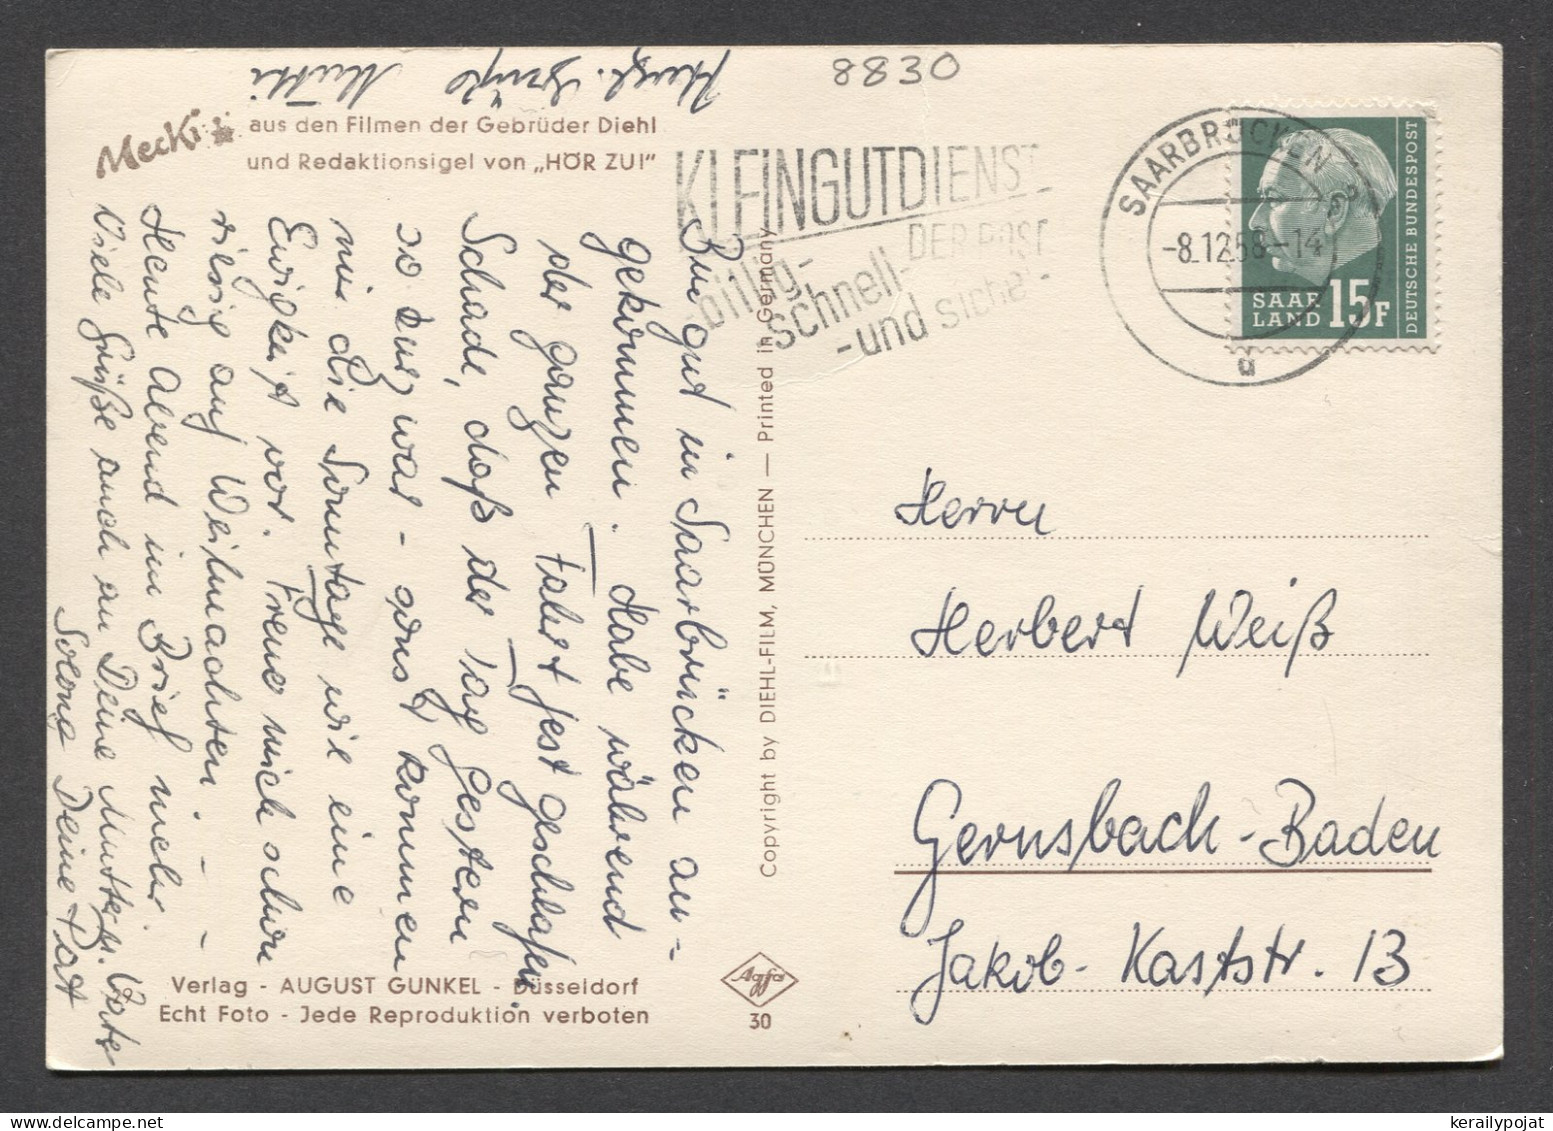 8830
Herzl. Grüße Mutti
Mecki
aus den Filmen der Gebrüder Diehl
und Redaktionsigel von „HÖR ZU!"
KLEINGUTDIENST
DER POST
billig-
schnell-
-und sicher-
SAARBRÜCKEN 2
-8.12.58-14
a
SAAR
LAND 15F
DEUTSCHE BUNDESPOST
Bin gut in Saarbrücken an-
gekommen. Habe während
der ganzen Fahrt fest geschlafen.
Schade, daß der Tag gestern
so kurz war - sonst kommen
mir die Sonntage wie eine
Ewigkeit vor. Freue mich schon
riesig auf Weihnachten. - -
Heute Abend im Brief mehr.
Viele Grüße auch an Deine Mutter u.
Deine
Copyright by DIEHL-FILM, MÜNCHEN — Printed in Germany
Herrn
Herbert Weiß
Gernsbach-Baden
Jakob-Kaststr. 13
Verlag - AUGUST GUNKEL - Düsseldorf
Echt Foto - Jede Reproduktion verboten
Agfa
30
kerailypojat